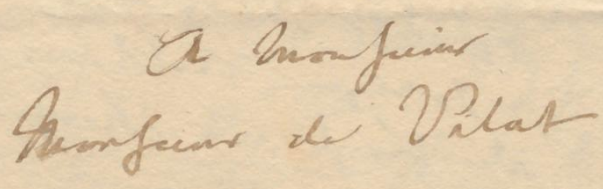 A Monsieur
Monsieur de Vilat